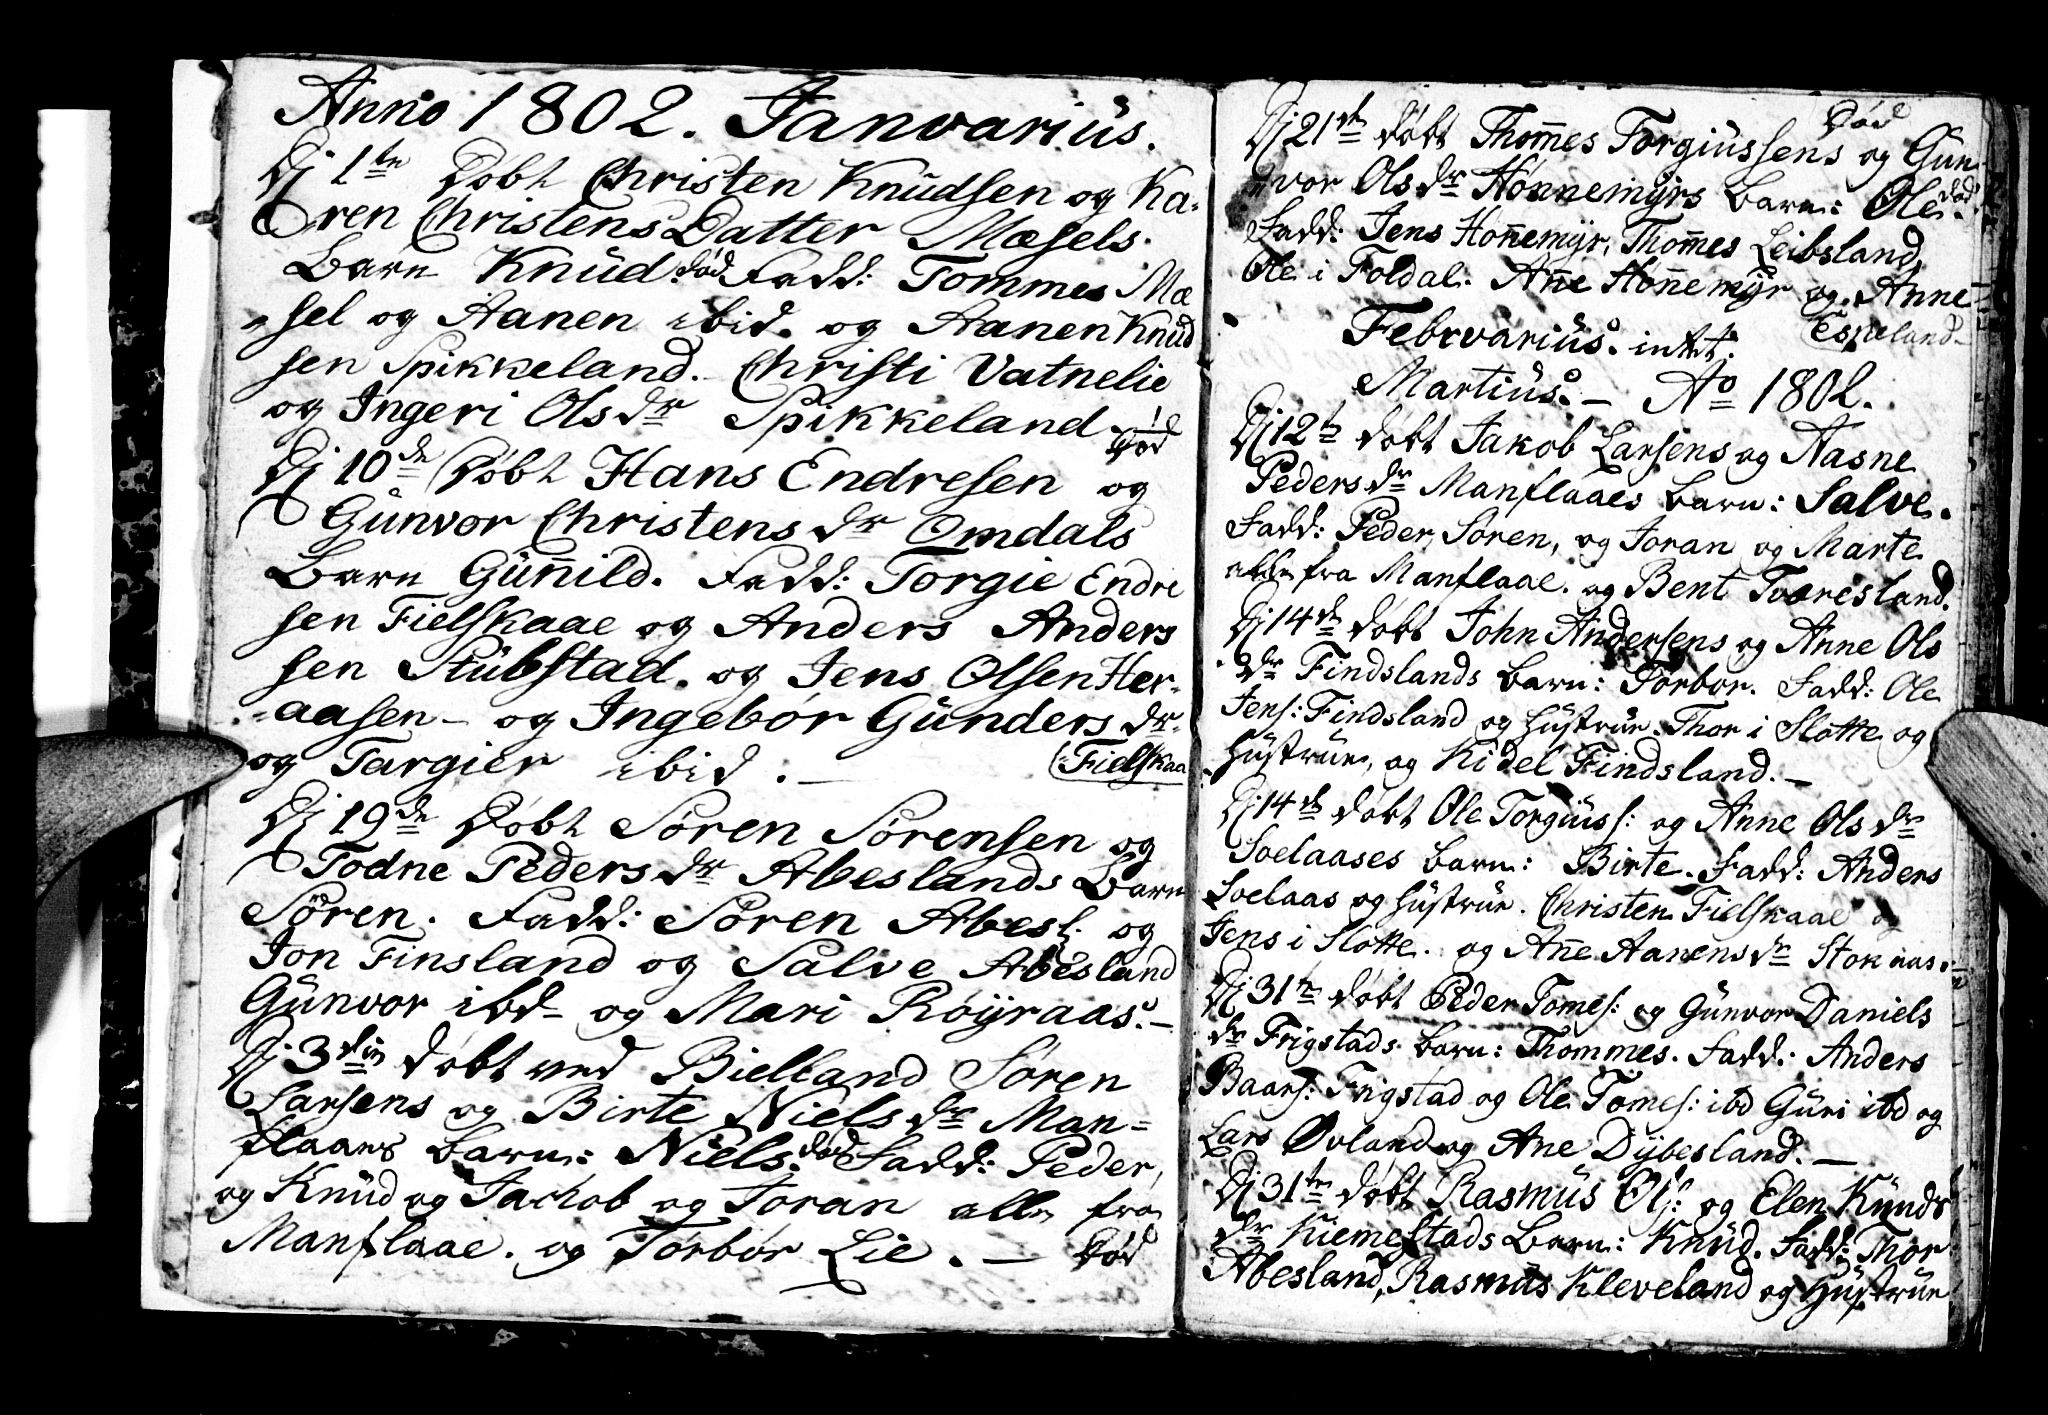 Anno 1802. Janvarius.
Dj 1te Døbt Christen Knudsen og Ka-
ren Christens Datter Mæsels.
Barn Knud. død Fadd: Tommes Mæ
sel og Aanen ibid. og Aanen Knud
sen Spikkeland. Christi Vatnelie
og Ingeri Olsdr Spikkeland.
død
Dj 10de Døbt Hans Endresen og
Gunvor Christensdr Omdals
Barn Gunnild. Fadd: Torgie Endre
sen Fielskaae og Anders Anders
sen Stubstad. og Jens Olsen Her-
aasen - og Ingebor Gundersdr.
og Targier ibid. - Fielskaa
Dj 19de Døbt Søren Sørensen og
Todne Pedersdr Abeslands Barn
Søren. Fadd: Søren Abesl. og
Jon Finsland og Salve Abesland
Gunvor ibd og Mari Røyraas. -
Dj 3die døbt ved Bielland Søren
Larsens og Birte Nielsdr Man-
flaaes Barn: Niels. død Fadd: Peder,
og Knud og Jachob og Joran alle fra
Manflaae. og Torbor Lie. - død
død
Dj 21de døbt Thom̄es Torgiussens og Gun-
vor Olsdr Honnemyrs Barn: Ole. død.
Fadd: Jens Hon̄emyr, Thom̄es Leibsland,
Ole i Foldal. An̄e Hon̄emyr og Anne
Espeland -
Febrvarius. intet.
Martius. - Ao 1802.
Dj 12te døbt Jakob Larsens og Aasne
Pedersdr Manflaaes Barn: Salve.
Fadd: Peder, Søren, og Joran og Marte
alle fra Manflaae. og Bent Tveresland.
Dj 14de døbt John Andersens og Anne Ols
dr Findslands Barn: Torbor. Fadd: Ole
Jens: Findsland og Hustrue. Thor i Slotte og
Hustrue, og Kidel Findsland. -
Dj 14de døbt Ole Torgiuss: og Anne Olsdr
Soelaases Barn: Birte. Fadd: Anders
Soelaas og Hustrue. Christen Fielskaae og
Jens i Slotte. og An̄e Aanensdr Stokaas. -
Dj 31te døbt Peder Tomes: og Gunvor Daniels
dr Frigstads Barn: Thommes. Fadd: Anders
Baars: Frigstad og Ole Tomes: ibd Guri ibd og
Lars Øvland og Ane Dybesland. -
Dj 31te døbt Rasmus Ols: og Elen Knuds
dr Kiemestads Barn: Knud. Fadd: Thor
Abesland, Rasmus Kleveland og Hustrue